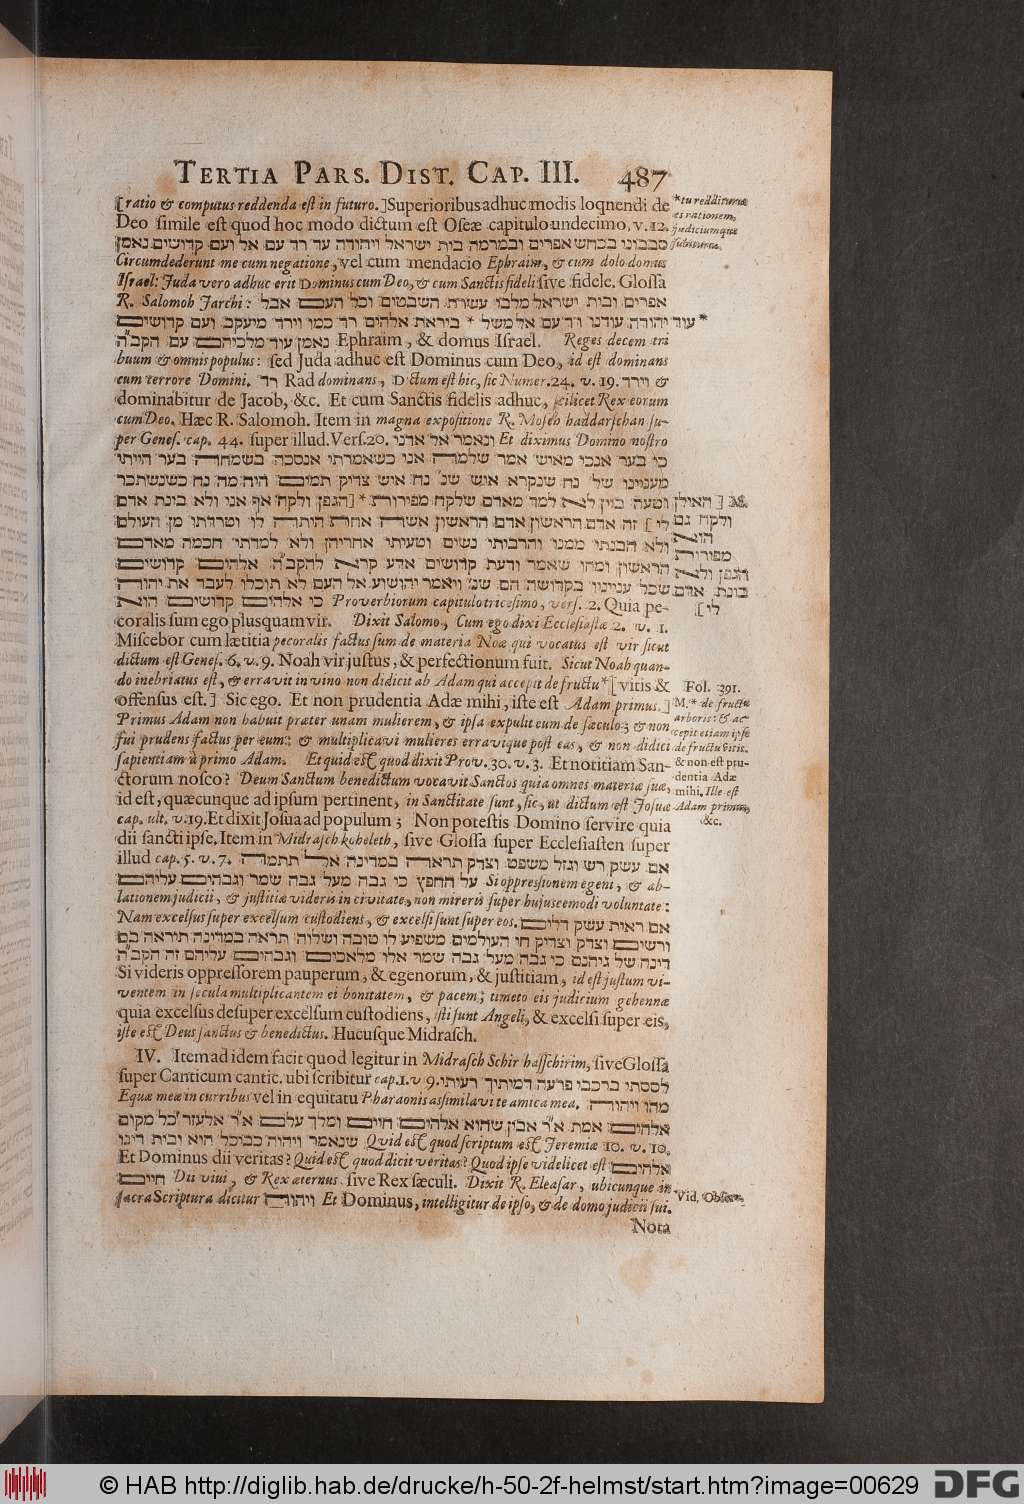 TERTIA PARS. DIST. CAP. III. 487
[ratio & computus reddenda est in futuro.] Superioribus adhuc modis loqnendi de
Deo simile est quod hoc modo dictum est Oseæ capitulo undecimo, v. 12.
סבבוני בכחש אפרים ובמרמה בית ישראל ויהודה עד רד עם אל ועם קדושים נאמן
Circumdederunt me cum negatione, vel cum mendacio Ephraim, & cum dolo domus
Israel: Juda vero adhuc erit Dominus cum Deo, & cum Sanctis fideli sive fidele. Glossa
R. Salomoh Jarchi: אפרים ובית ישראל מלכו עשרת השבטים וכל העם אבל
עוד יהודה עודנו רד עם אל משל * ביראת אלהים רד כמו וירד מיעקב ועם קדושים*
נאמן עוד מלכיהם עם הקב"ה Ephraim, & domus Israel. Reges decem tri
buum & omnis populus: sed Juda adhuc est Dominus cum Deo, id est dominans
cum terrore Domini. רד Rad dominans, Dictum est hic, sic Numer. 24. v. 19. וירד &
dominabitur de Jacob, &c. Et cum Sanctis fidelis adhuc, scilicet Rex eorum
cum Deo. Hæc R. Salomoh. Item in magna expositione R. Moseh haddarschan su-
per Genes. cap. 44. super illud. Vers. 20. ונאמר אל אדני Et diximus Domino nostro
כי בער אנכי מאיש אמר שלמה אני כשאמרתי אנסכה בשמחה בער הייתי
מעניינו של נח שנקרא איש שנ' נח איש צדיק תמים היה מה נח כשנשתכר
וטעה ביין לא למד מאדם שלקח מפירות * [הגפן ולקח אף אני ולא בינת אדם
לי] זה אדם הראשון אדם הראשון אשה אחת היתה לו וטרדתו מן העולם
ולא הבנתי ממנו והרביתי נשים וטעיתי אחריהן ולא למדתי חכמה מאדם
הראשון ומהו שאמר ודעת קדושים אדע קרא להקב"ה אלהים קדושים
שכל עניינו בקדושה הם שנ' ויאמר יהושוע אל העם לא תוכלו לעבד את יהוה
כי אלהים קדושים הוא Proverbiorum capitulo tricesimo, vers. 2. Quia pe-
coralis sum ego plusquam vir. Dixit Salomo, Cum ego dixi Ecclesiastæ 2. v. 1.
Miscebor cum lætitia pecoralis factus sum de materia Noæ qui vocatus est vir sicut
dictum est Genes. 6. v. 9. Noah vir justus, & perfectionum fuit. Sicut Noah quan-
do inebriatus est, & erravit in vino non didicit ab Adam qui accepit de fructu * [vitis &
offensus est.] Sic ego. Et non prudentia Adæ mihi, iste est Adam primus.]
Primus Adam non habuit præter unam mulierem, & ipsa expulit eum de sæculo; & non
fui prudens factus per eum; & multiplicavi mulieres erravique post eas, & non didici
sapientiam à primo Adam. Et quid est quod dixit Prov. 30. v. 3. Et notitiam San-
ctorum nosco? Deum Sanctum benedictum vocavit Sanctos quia omnes materiæ suæ,
id est, quæcunque ad ipsum pertinent, in Sanctitate sunt, sic, ut dictum est Josuæ
cap. ult. v. 19. Et dixit Josua ad populum; Non potestis Domino servire quia
dii sancti ipse. Item in Midrasch koheleth, sive Glossa super Ecclesiasten super
illud cap. 5. v. 7. אם עשק רש וגזל משפט וצדק תראה במדינה אל תתמה
על החפץ כי גבה מעל גבה שמר וגבהים עליהם Si oppressionem egeni, & ab-
lationem judicii, & justitiæ videris in civitate, non mireris super hujuscemodi voluntate:
Nam excelsus super excelsum custodiens, & excelsi sunt super eos. אם ראית עשק דלים
ורשים וצדק וצדיק חי העולמים משפיע לו טובה ושלוה תראה במדינה תיראה בם
דינה של גיהנם כי גבה מעל גבה שמר אלו מלאכים וגבהים עליהם זה הקב"ה
Si videris oppressorem pauperum, & egenorum, & justitiam, id est justum vi-
ventem in secula multiplicantem ei bonitatem, & pacem; timeto eis judicium gehennæ
quia excelsus desuper excelsum custodiens, isti sunt Angeli, & excelsi super eis,
iste est Deus sanctus & benedictus. Hucusque Midrasch.
IV. Item ad idem facit quod legitur in Midrasch Schir hasschirim, sive Glossa
super Canticum cantic. ubi scribitur cap. 1. v 9. לססתי ברכבי פרעה דמיתיך רעיתי
Equæ meæ in curribus vel in equitatu Pharaonis assimilavi te amica mea. מהו ויהוה
אלהים אמת א"ר אבין שהוא אלהים חיים ומלך עלם א"ר אלעזר כל מקום
שנאמר ויהוה כבוכל הוא ובית דינו Quid est quod scriptum est Jeremiæ 10. v. 10.
Et Dominus dii veritas? Quid est quod dicit veritas? Quod ipse videlicet est אלהים
חיים Dii vivi, & Rex æternus sive Rex sæculi. Dixit R. Eleasar, ubicunque in
sacra Scriptura dicitur ויהוה Et Dominus, intelligitur de ipso, & de domo judicii sui.
Nota
* tu redditurus
es rationem,
judiciumque
subiturus.
M. [האילן
ולקח גם
הוא
מפירות
הגפן ולא
בונת אדם
לי].
Fol. 391.
M. * de fructu
arboris: & ac-
cepit etiam ipse
de fructu vitis.
& non est pru-
dentia Adæ
mihi. Ille est
Adam primus,
&c.
Vid. Observ.
© HAB http://diglib.hab.de/drucke/h-50-2f-helmst/start.htm?image=00629 DFG